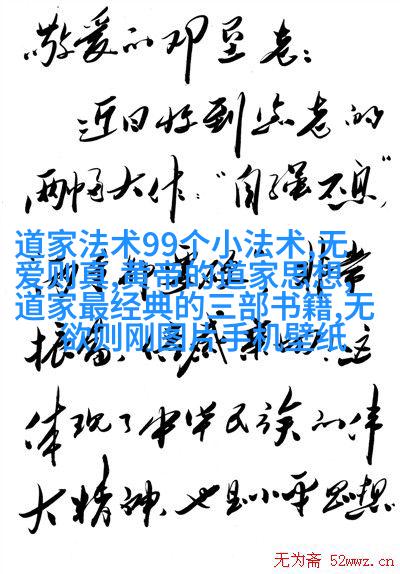 敬爱的邓垦老:
近日收到您老的
两幅大作:"自强不息"
道家法术99个小法术,无
爱则真,黄帝的道家思想,
非常
道家最经典的三部书籍,无
欲则刚图片手机壁纸
振奋,倍感亲切,这
体现了中华民族的伟
大精神,也是小平思想
无为斋 52wwz.cn